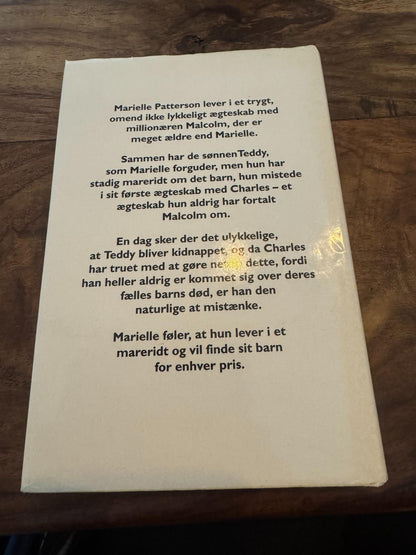 Marielle Patterson lever i et trygt,
omend ikke lykkeligt ægteskab med
millionæren Malcolm, der er
meget ældre end Marielle.
Sammen har de sønnenTeddy,
som Marielle forguder, men hun har
stadig mareridt om det barn, hun mistede
i sit første ægteskab med Charles – et
ægteskab hun aldrig har fortalt
Malcolm om.
En dag sker der det ulykkelige,
at Teddy bliver kidnappet, og da Charles
har truet med at gøre netop dette, fordi
han heller aldrig er kommet sig over deres
fælles barns død, er han den
naturlige at mistænke.
Marielle føler, at hun lever i et
mareridt og vil finde sit barn
for enhver pris.